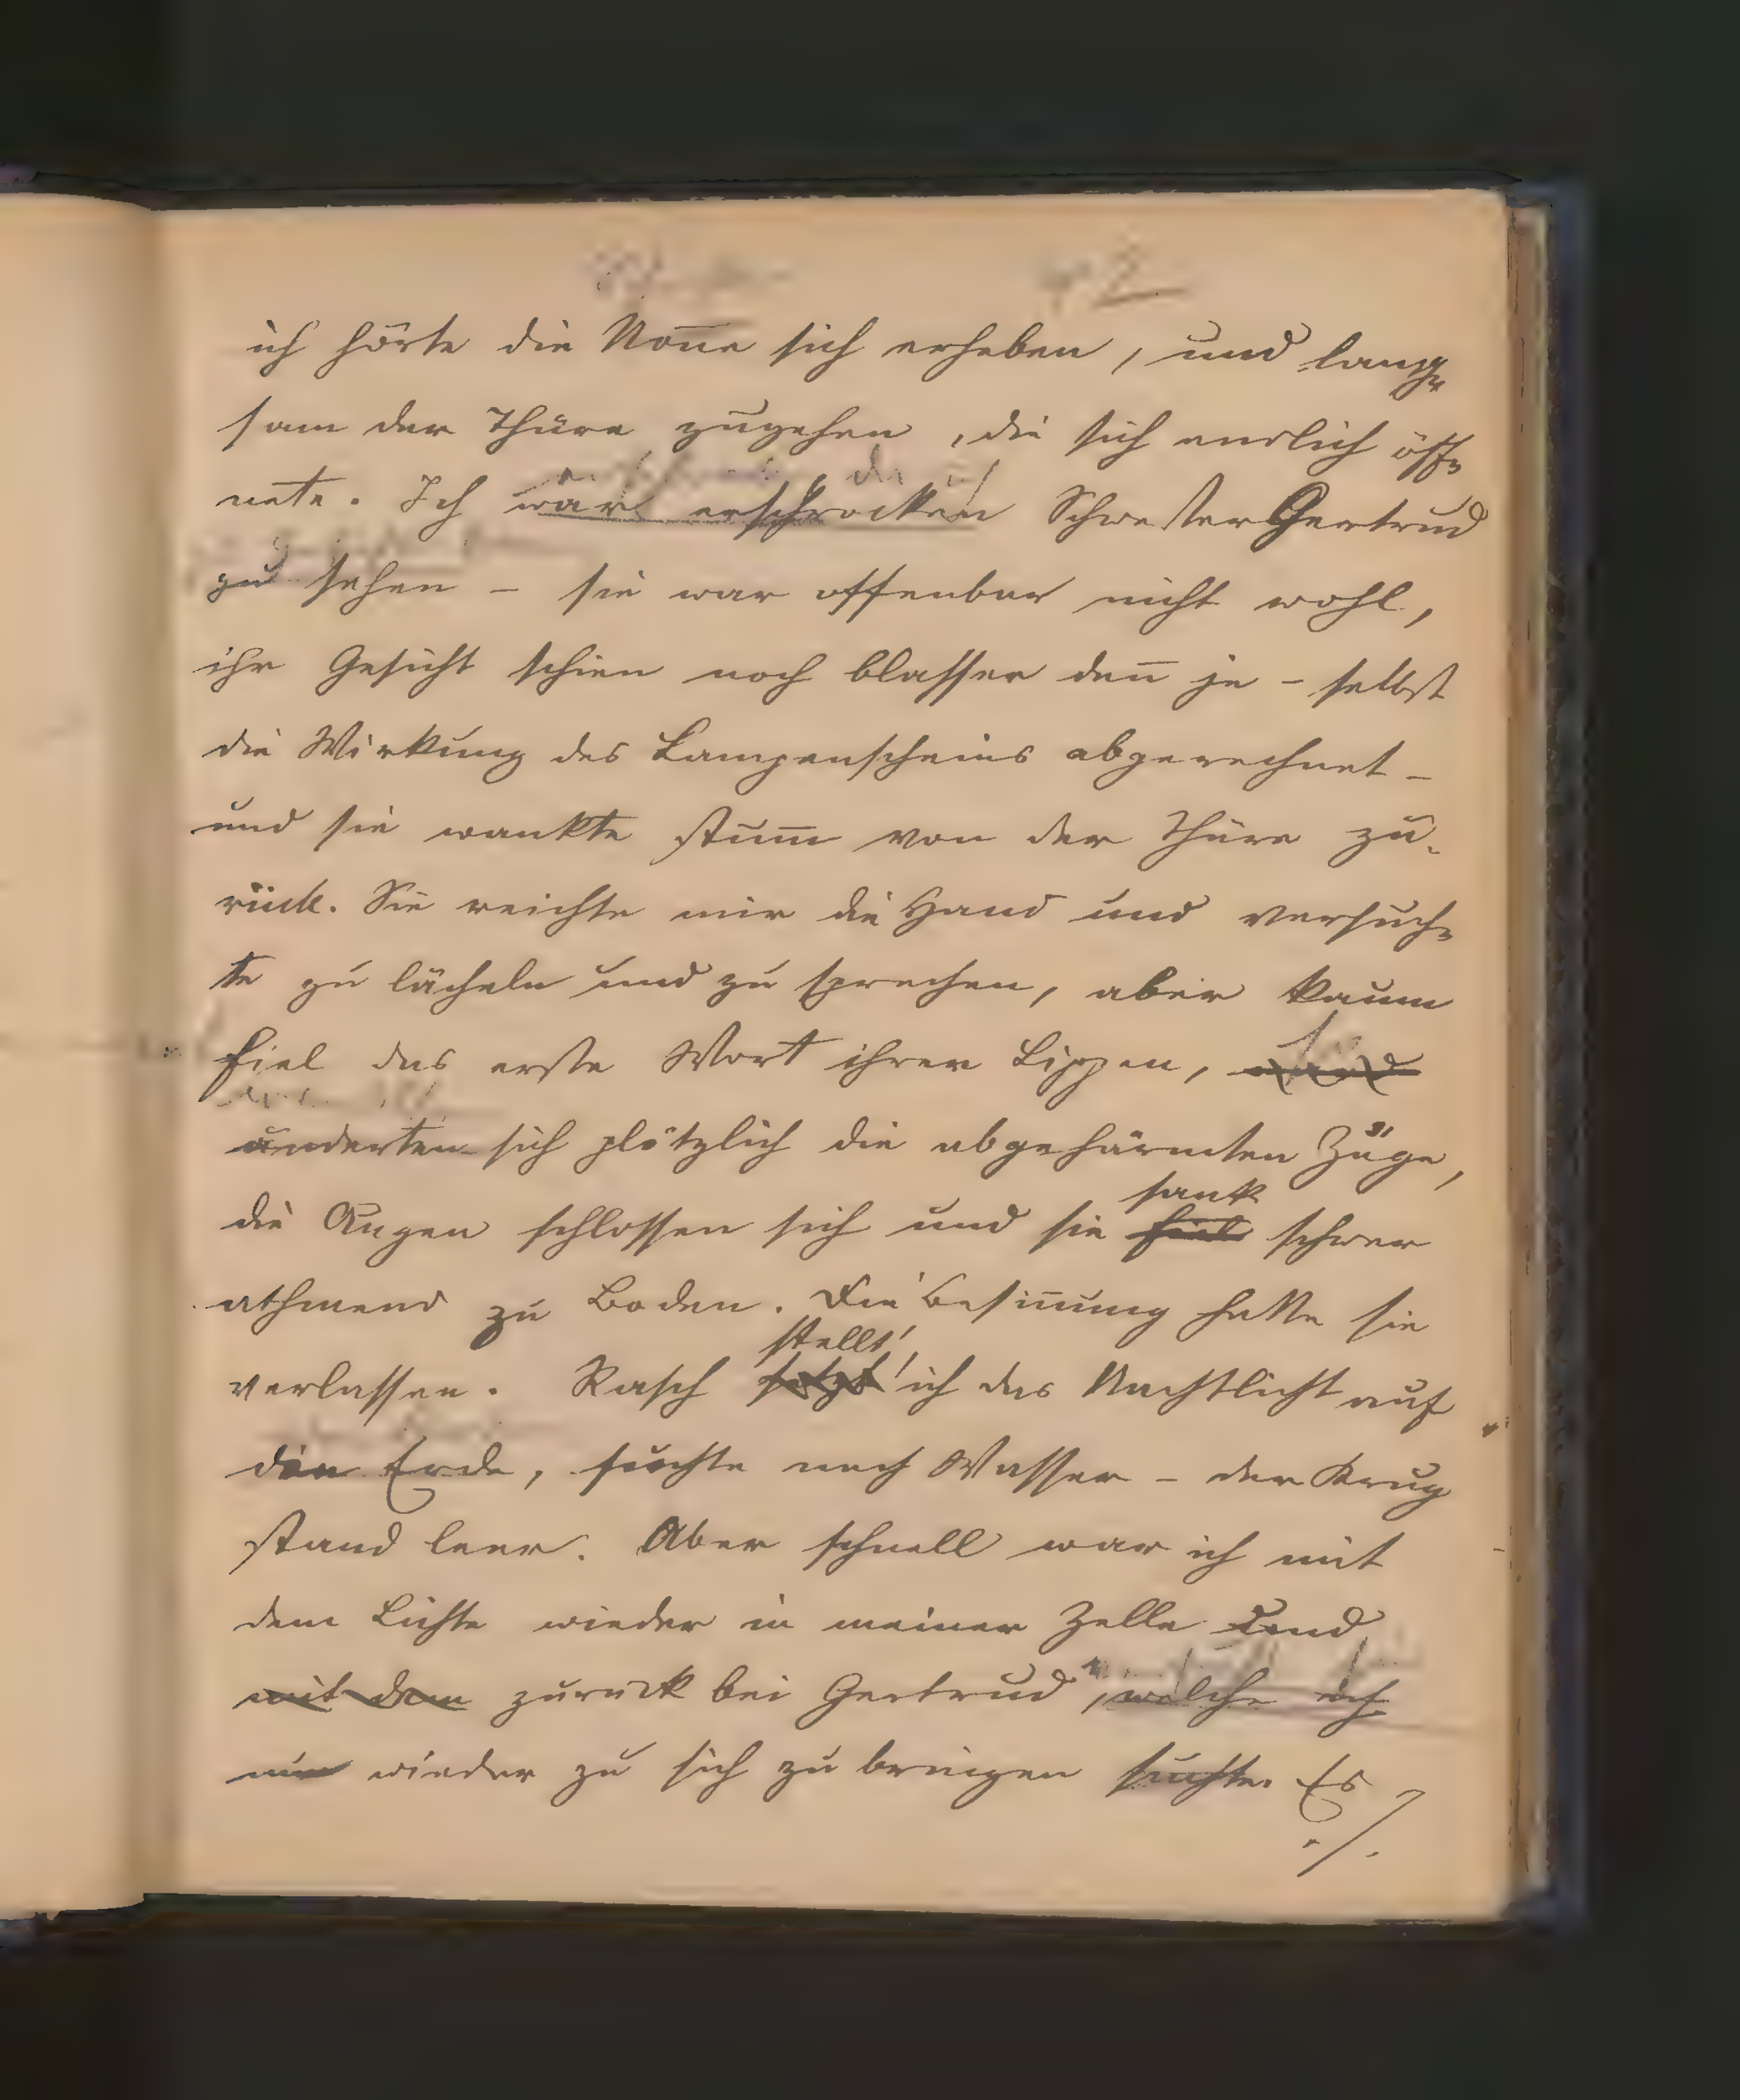 ich hörte die Non̄e sich erheben, und lang-
sam der Thüre zugehen, die sich endlich öff-
nete. Ich war erschrocken Schwester Gertrud
zu sehen – sie war offenbar nicht wohl,
ihr Gesicht schien noch blasser den̄ je – selbst
die Wirkung des Lampenscheins abgerechnet –
und sie wankte stum̄ von der Thüre zu-
rück. Sie reichte mir die Hand und versuch-
te zu lächeln und zu sprechen, aber kaum
fiel das erste Wort ihren Lippen,
änderten sich plötzlich die abgehärmten Züge,
sank
die Augen schlossen sich und sie fiel schwer
athmend zu Boden. Die Besin̄ung hatte sie
stellt'
verlassen. Rasch setzt' ich das Nachtlicht auf
den Erde, suchte nach Wasser – der Krug
stand leer. Aber schnell war ich mit
dem Lichte wieder in meiner Zelle und
mit dem zurück bei Gertrud, welche ich
nun wieder zu sich zu bringen suchte. Es
./.